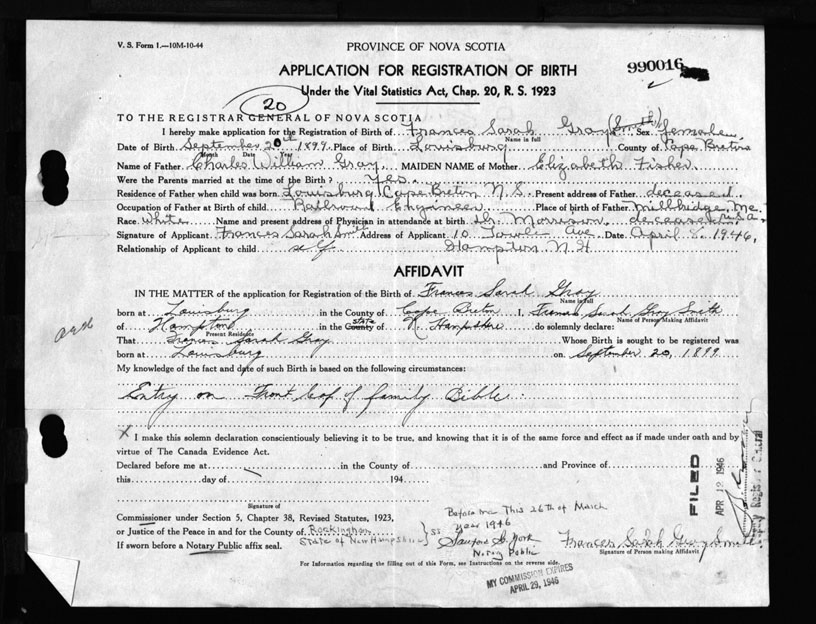 V. S. Form 1.—10M-10-44
PROVINCE OF NOVA SCOTIA
990016
APPLICATION FOR REGISTRATION OF BIRTH
Under the Vital Statistics Act, Chap. 20, R. S. 1923
20
TO THE REGISTRAR GENERAL OF NOVA SCOTIA
I hereby make application for the Registration of Birth of Frances Sarah Gray (Smith) Sex female
Name in full
Date of Birth September 20th 1899 Place of Birth Louisburg County of Cape Breton
Month Date Year
Name of Father Charles William Gray MAIDEN NAME of Mother Elizabeth Fisher
Were the Parents married at the time of the Birth? Yes.
Residence of Father when child was born Louisburg Cape Breton N.S. Present address of Father deceased
Occupation of Father at Birth of child Railroad Engineer Place of birth of Father Millbridge, Me. U.S.A.
Race White Name and present address of Physician in attendance at birth Dr. Morrison deceased
Signature of Applicant Frances Sarah Smith Address of Applicant 10 Towle Ave Date April 8, 1946,
Relationship of Applicant to child self Hampton N.H
AFFIDAVIT
IN THE MATTER of the application for Registration of the Birth of Frances Sarah Gray
Name in full
born at Louisburg in the County of Cape Breton I, Frances Sarah Gray Smith
Name of Person Making Affidavit
of Hampton in the County state of N. Hampshire do solemnly declare:
Present Residence
That Frances Sarah Gray Whose Birth is sought to be registered was
born at Louisburg on September 20, 1899
My knowledge of the fact and date of such Birth is based on the following circumstances:
Entry on Front leaf of family Bible.
X I make this solemn declaration conscientiously believing it to be true, and knowing that it is of the same force and effect as if made under oath and by
virtue of The Canada Evidence Act.
Declared before me at in the County of and Province of
this day of 194
Signature of
Commissioner under Section 5, Chapter 38, Revised Statutes, 1923,
or Justice of the Peace in and for the County of Rockingham
State of New Hampshire } SS
If sworn before a Notary Public affix seal.
Before me This 26th of March
Year 1946
Sanford S. York
Notary Public
Frances Sarah Gray Smith
Signature of Person making Affidavit
For Information regarding the filling out of this Form, see Instructions on the reverse side.
MY COMMISSION EXPIRES
APRIL 29, 1946
FILED
APR 12 1946
Deputy Registrar General